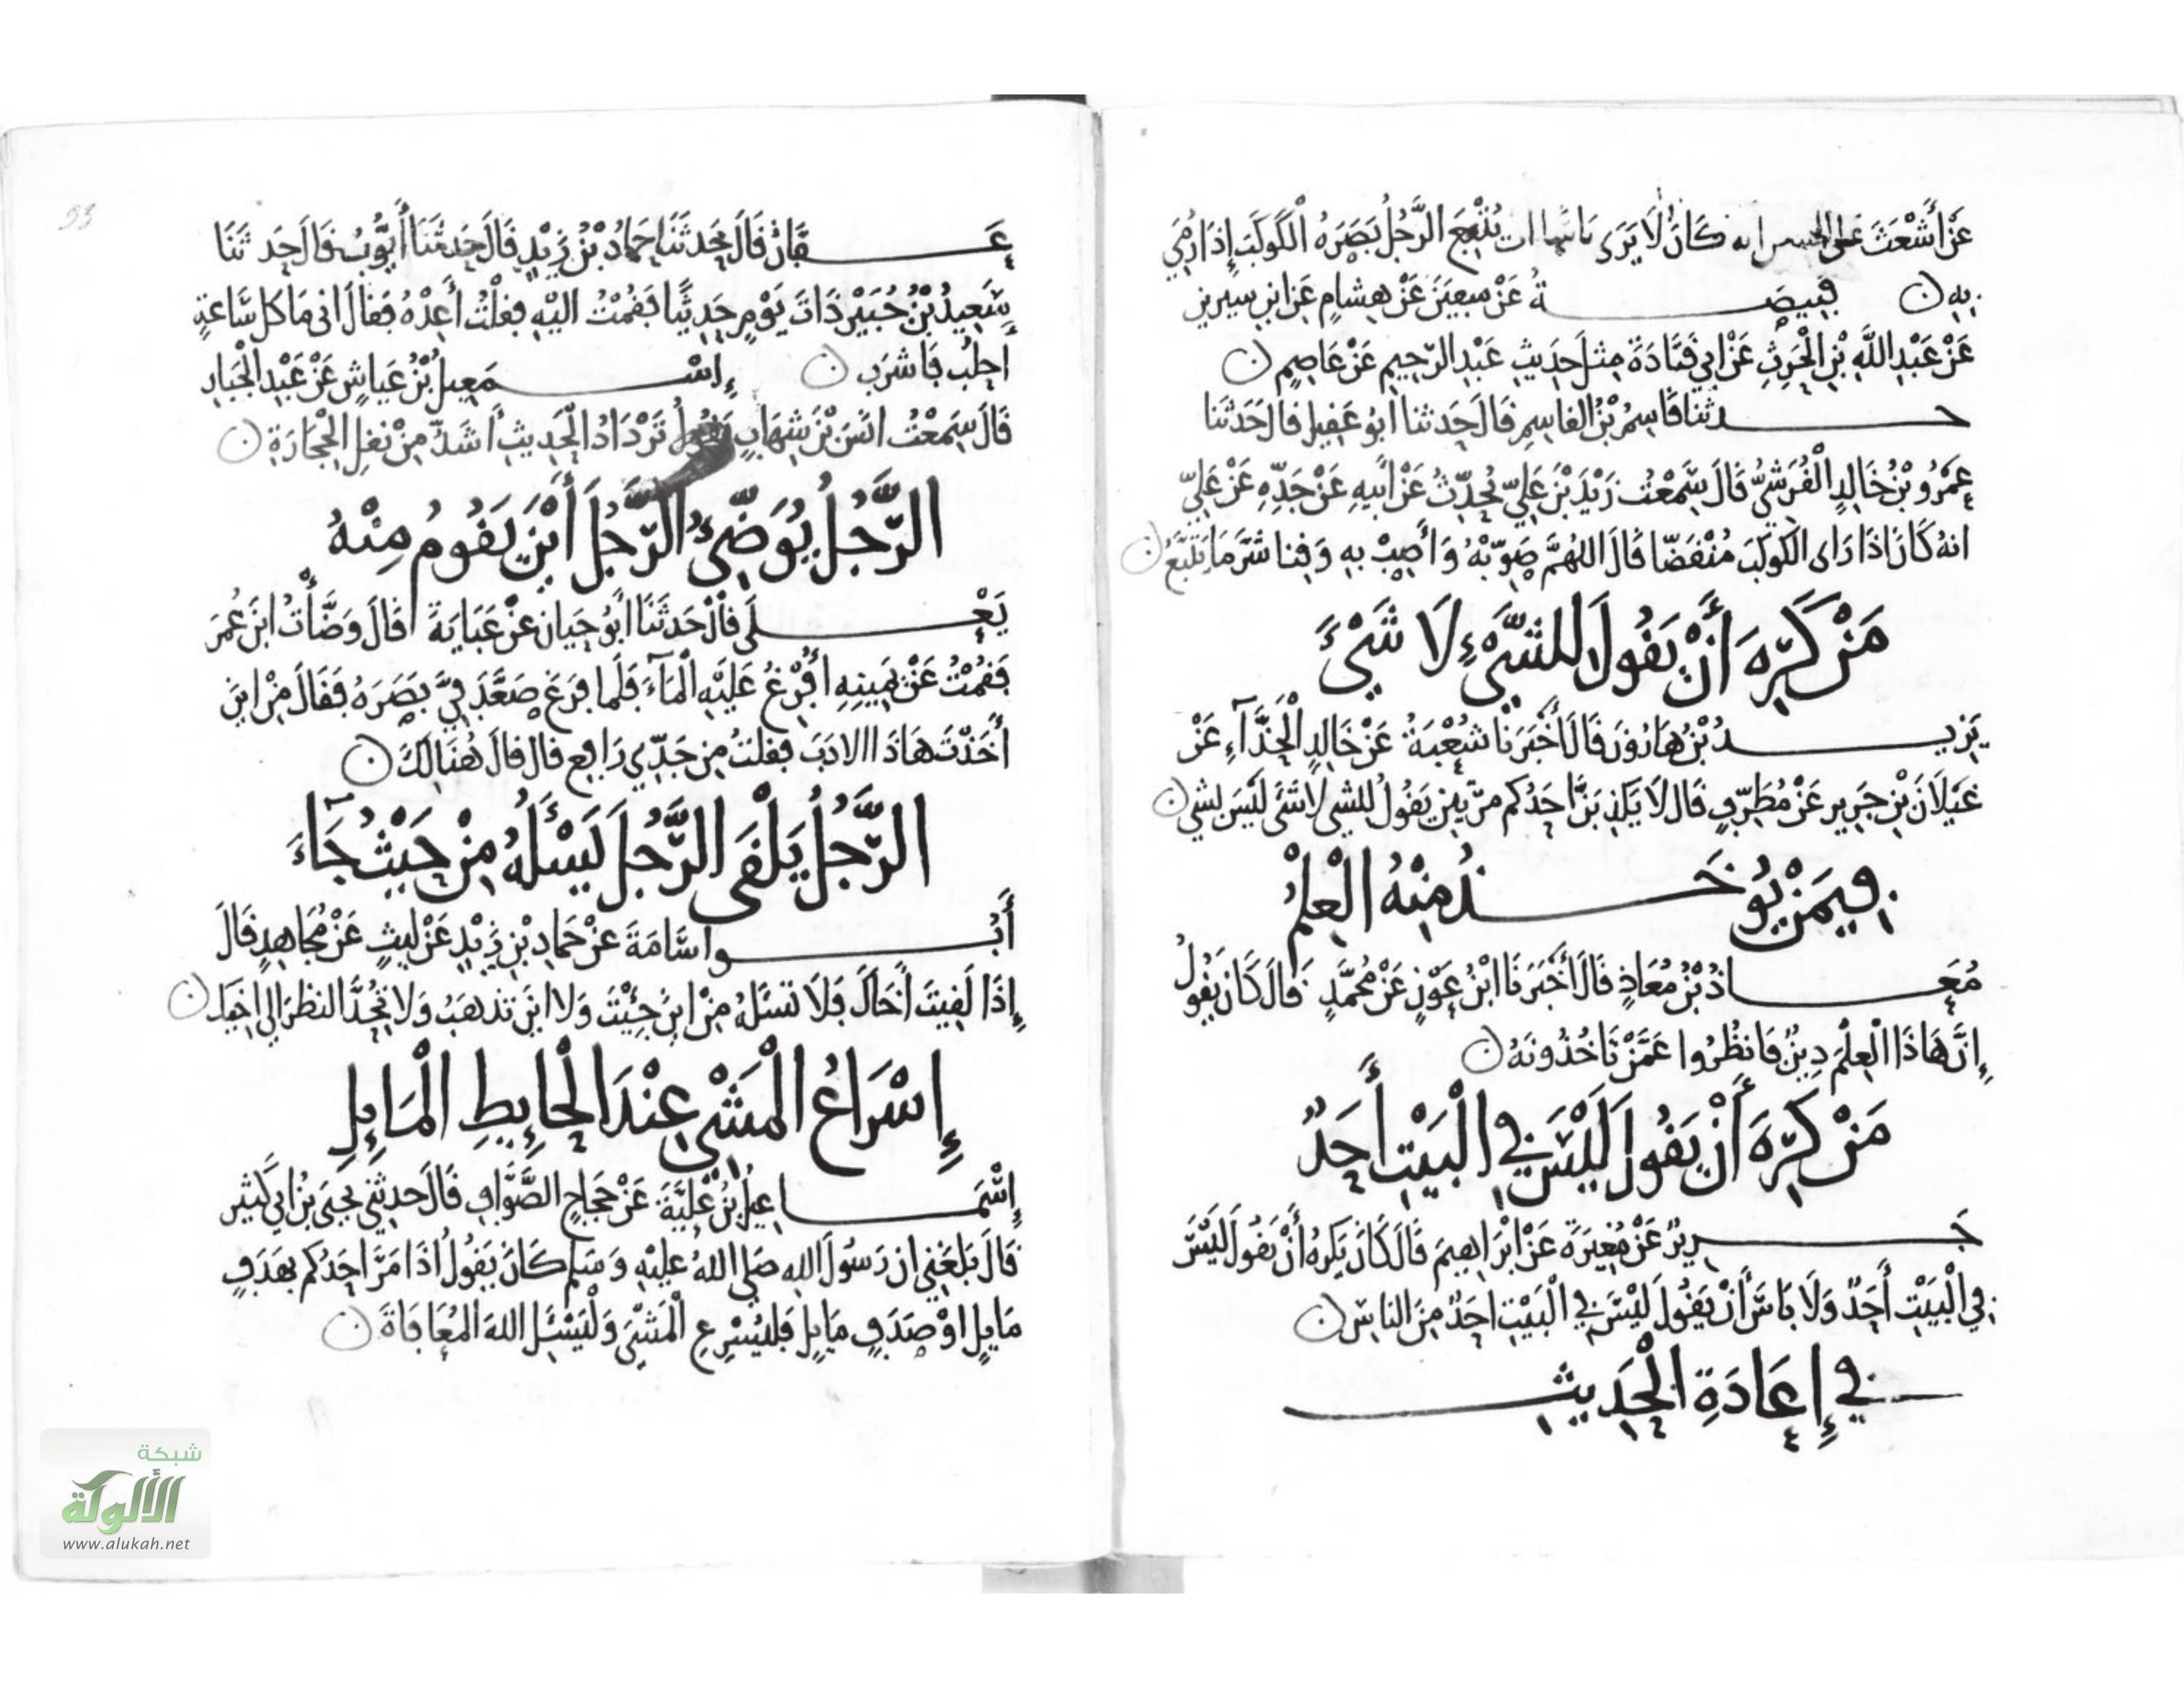 عَنْ أَشْعَثَ عن الحسن انه كَانَ لَا يَرَى بَاسًا ان يُتْبِعَ الرَّجُلُ بَصَرَهُ الْكَوكَبَ إِذَا رُمِيَ
بِهِ ن قَبِيصَةُ عَنْ سفيٰنَ عَنْ هِشَامٍ عَنِ ابْنِ سِيرِينَ
عَنْ عَبْدِ اللَّهِ بْنِ الْحَرِثِ عَنْ أبِي قَتَادَةَ مِثلَ حَدِيثِ عَبْدِ الرَّحِيمِ عَنْ عَاصِمٍ ن
حدثنا قَاسِمُ بْنُ القاسِمِ قَالَ حَدثنا أبُو عَقِيلٍ قَالَ حَدَّثَنَا
عَمْرُو بْنُ خَالِدٍ الْقُرَشِيُّ قَالَ سَمِعْتُ زَيْدَ بْنَ عَلِيٍّ يُحَدِّثُ عَنْ أَبِيهِ عَنْ جَدِّهِ عَنْ عَلِيٍّ
انهُ كَانَ اذَا رَاى الكَوكَبَ مُنْقَضًّا قَالَ اللهُمَّ صَوِّبْهُ وَأَصِبْ بِهِ وَقِنا شَرَّ مَا يَتْبَعُ ن
مَنْ كَرِهَ أَنْ يَقُولَ لِلشَّيْءِ لَا شَيْءَ
يَزِيدُ بْنُ هَارُونَ قَالَ أَخْبَرَنَا شُعْبَةُ عَنْ خَالِدٍ الْحَذَّآءِ عَنْ
غَيْلَانَ بْنِ جَرِيرٍ عَنْ مُطَرِّفٍ قَالَ لَا يَكْذِبَنَّ احَدُكم مرّتينِ يَقُولُ لِلشي لَاشَئَ لَيْسَ بشي ن
فِيمَنْ يُوخَذُ مِنْهُ الْعِلْمُ
مُعَاذُ بْنُ مُعَاذٍ قَالَ أَخْبَرَنَا ابْنُ عَوْنٍ عَنْ مُحَمَّدٍ قَالَ كَانَ يَقُولُ
إِنَّ هَاذَا الْعِلْمَ دِينٌ فَانظُرُوا عَمَّنْ تَاخُذُونَهُ ن
مَنْ كَرِهَ أَنْ يَقُولَ لَيْسَ فِي الْبَيْتِ أَحَدٌ
جَرِيرٌ عَنْ مُغِيرَةَ عَنْ ابْرَاهِيمَ قَالَ كَانَ يَكْرَهُ أَنْ يَقُولَ لَيْسَ
فِي الْبَيْتِ أَحَدٌ وَلَا بَاسَ أَنْ يَقُولَ لَيْسَ فِي الْبَيْتِ احَدٌ مِنَ الناسِ ن
فِي إِعَادَةِ الْحَدِيثِ
93
عَفَّانُ قَالَ حَدثَنَا حَمادُ بْنُ زَيْدٍ قَالَ حَدثَنَا أَيُّوبُ قَالَ حَدثَنَا
سَعِيدُ بْنُ جُبَيْرٍ ذَاتَ يَوْمٍ حَدِيثًا فَقُمْتُ الَيْهِ فقلْتُ أَعِدْهُ فَقالَ انى مَا كل سَّاعَةٍ
أحلِبُ فَاشرَب ن إِسْمَعِيلُ بْنُ عَياشٍ عَنْ عَبْدِ الْجَبارِ
قَالَ سَمِعْتُ ابْنَ شِهَابٍ يَقُولُ تَرْدَادُ الْحَدِيثِ أَشَدُّ مِنْ نَقْلِ الْحِجَارَةِ ن
الرَّجُلُ يُوَضِّئُ الرَّجُلَ أَيْنَ يَقُومُ مِنْهُ
يَعْلَى قَالَ حَدَثَنَا أَبُو حَيانَ عَنْ عَبَايَةَ قَالَ وَضَّأْتُ ابْنَ عُمَرَ
فَقُمْتُ عَنْ يَمِينِهِ أُفْرِغُ عَلَيْهِ الْمَآءَ فَلَما فَرَغَ صَعَّدَ فِيَّ بَصَرَهُ فَقَالَ مِنْ ايْنَ
أَخَذْتَ هَاذَا الادَبَ فقلتُ مِن جَدِّي رَافِعٍ قال قالَ هُنَالِكَ ن
الرَّجُلُ يَلْقَى الرَّجُلَ يَسْأَلُهُ مِنْ حَيْثُ جَآءَ
أَبُو اسَامَةَ عَنْ حَمادِ بْنِ زَيْدٍ عَنْ لَيْثٍ عَنْ مُجَاهِدٍ قَالَ
إِذَا لَقِيتَ أَخَاكَ فَلَا تَسْئَلْهُ مِنْ ايْنَ جِئْتَ وَلا ايْنَ تَذهَبُ وَلا تُحِدَّ النظرَ الى اخيك ن
إِسْرَاعُ الْمَشْيِ عِنْدَ الْحَايِطِ الْمَايِلِ
إِسْمَاعِيلُ بْنُ عُلَيَّةَ عَنْ حَجَاجٍ الصَّوَّافِ قَالَ حَدثَنِي يَحيَى بْنُ ابِي كَثِيرٍ
قَالَ بَلَغَنِي ان رَسُولَ اللهِ صَلى اللهُ عَلَيْهِ وَسَلم كَانَ يَقُولُ اذَا مَرَّ احَدُكم بهَدَفٍ
مَايِلٍ اوْ صَدَفٍ مَايِلٍ فَليُسْرِعِ الْمَشْيَ وَلْيَسْئَلِ اللهَ الْمُعَافَاةَ ن
شبكة
الألوكة
www.alukah.net